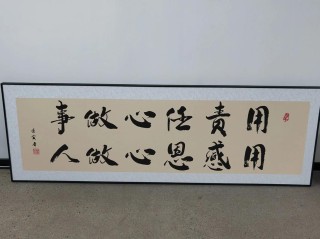 用責任心做事
用感恩心做人